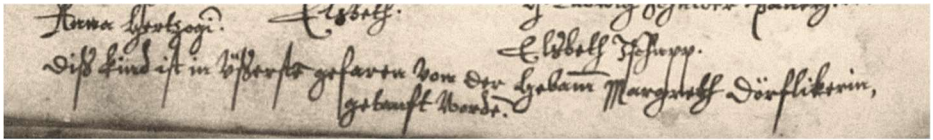 Anna Hertzogi. Elsbeth.
Elsbeth Tschupp.
Diss kind ist in üsserste gefaren von der Hebam̄ Margreth Dörflikerin,
getaufft worde.